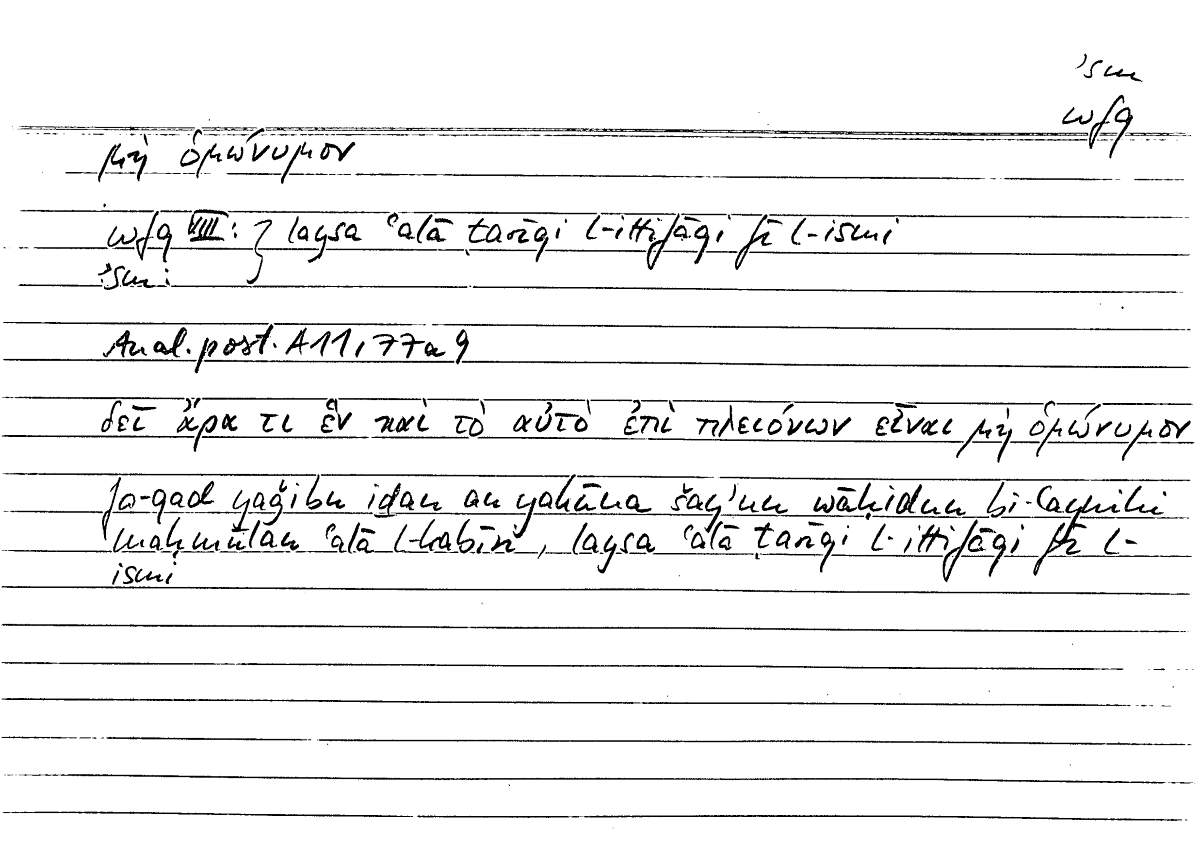 ʾsm
wfq
μὴ ὁμώνυμον
wfq VIII: } laysa ʿalā ṭarīqi l-ittifāqi fī l-ismi
ʾsm:
Anal. post. A11, 77a9
δεῖ ἄρα τι ἓν καὶ τὸ αὐτὸ ἐπὶ πλειόνων εἶναι μὴ ὁμώνυμον
fa-qad yaǧibu iḏan an yakūna šayʾun wāḥidun bi-ʿaynihi
maḥmūlan ʿalā l-kaṯīri, laysa ʿalā ṭarīqi l-ittifāqi fī l-
ismi